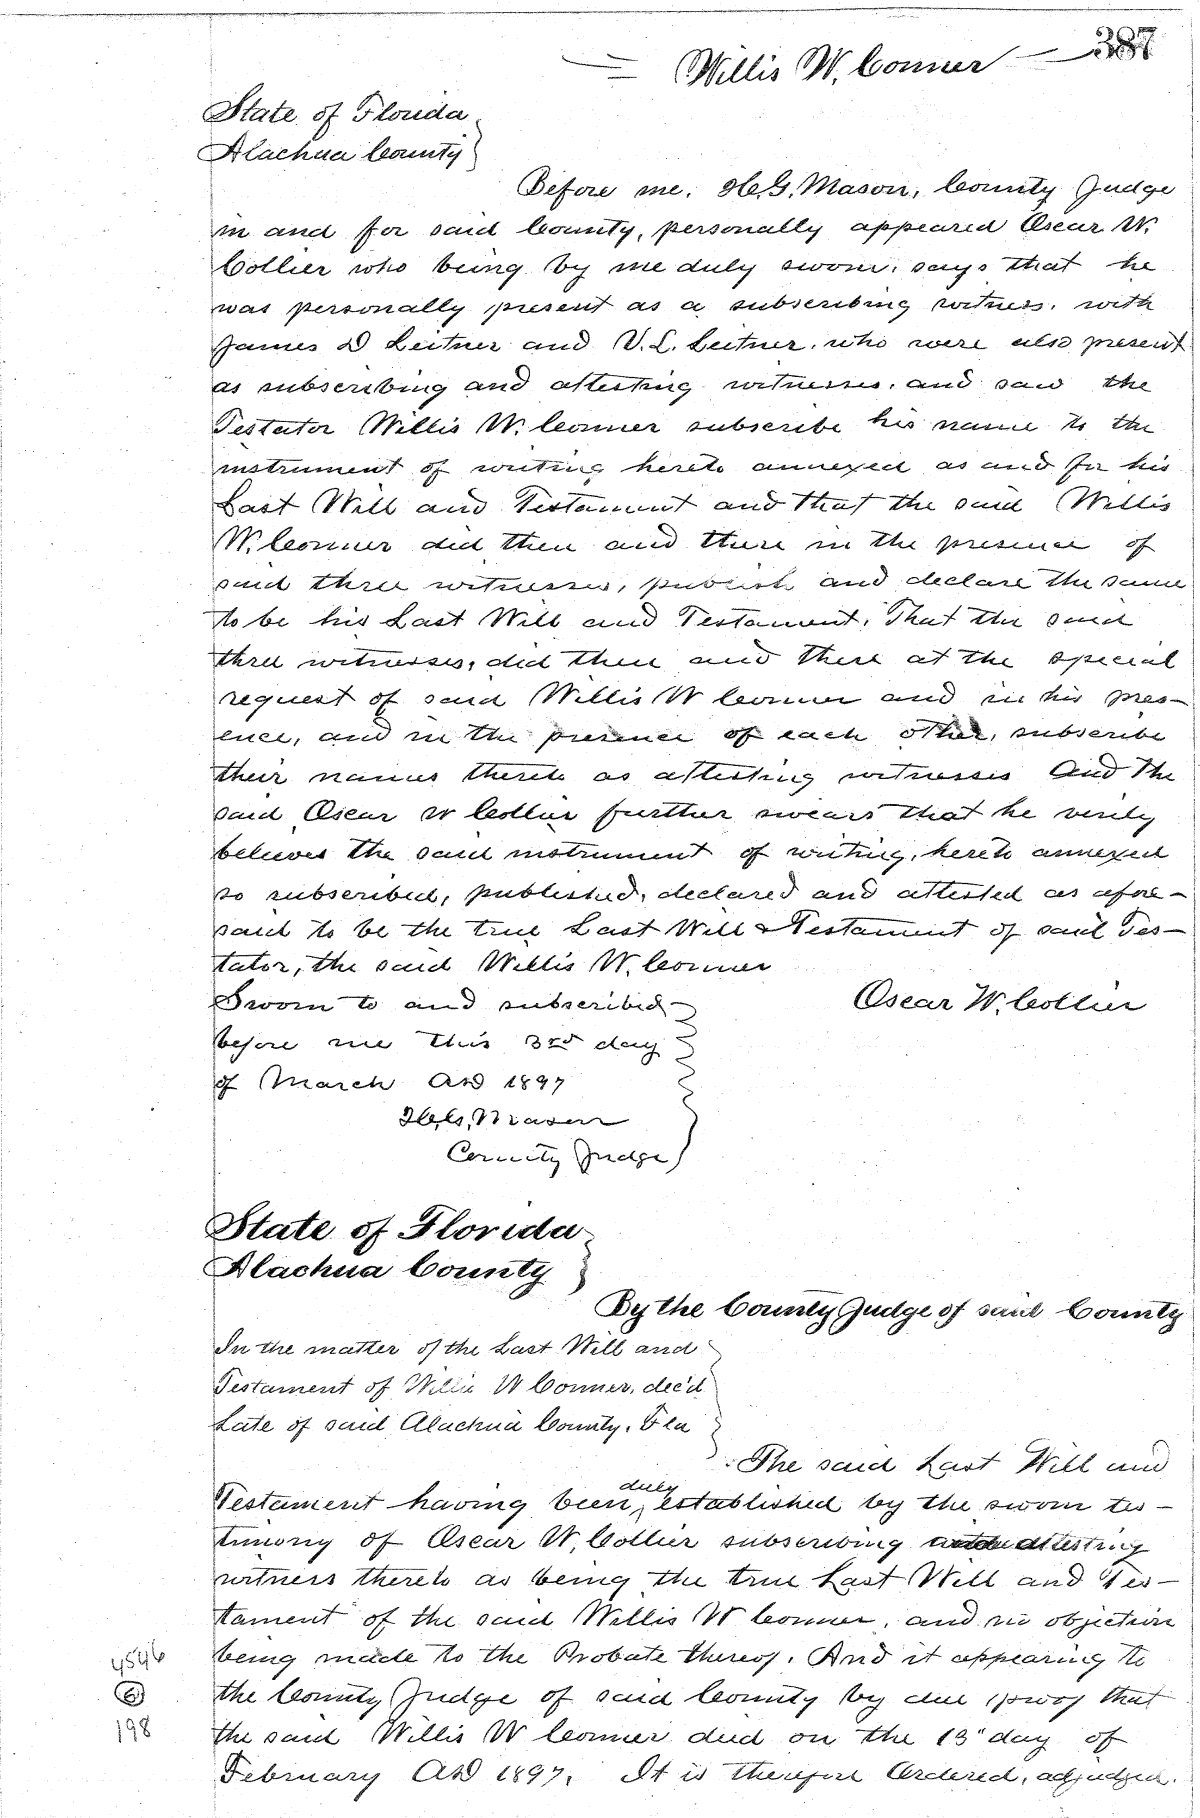 387
Willis W. Conner
State of Florida
Alachua County
Before me, H. G. Mason, County Judge
in and for said County, personally appeared Oscar W.
Collier who being by me duly sworn, says that he
was personally present as a subscribing witness, with
James D Leitner and V. L. Leitner, who were also present
as subscribing and attesting witnesses, and saw the
Testator Willis W. Conner subscribe his name to the
instrument of writing hereto annexed as and for his
Last Will and Testament and that the said Willis
W. Conner did then and there in the presence of
said three witnesses, publish and declare the same
to be his Last Will and Testament, That the said
three witnesses, did then and there at the special
request of said Willis W Conner and in his pres-
ence, and in the presence of each other, subscribe
their names thereto as attesting witnesses And the
said Oscar W Collier further swears that he verily
believes the said instrument of writing, hereto annexed
so subscribed, published, declared and attested as afore-
said to be the true Last Will & Testament of said Tes-
tator, the said Willis W. Conner
Sworn to and subscribed
Oscar W. Collier
before me this 3rd day
of March AD 1897
H. G. Mason
County Judge
State of Florida
Alachua County
By the County Judge of said County
In the matter of the Last Will and
Testament of Willis W Conner, dec'd
Late of said Alachua County, Fla
The said Last Will and
Testament having been duly established by the sworn tes-
timony of Oscar W. Collier subscribing attesting
witness thereto as being the true Last Will and Tes-
tament of the said Willis W Conner, and no objection
being made to the Probate thereof. And it appearing to
the County Judge of said County by due proof that
the said Willis W Conner died on the 13" day of
February AD 1897. It is therefore Ordered, adjudged.
4546
6
198